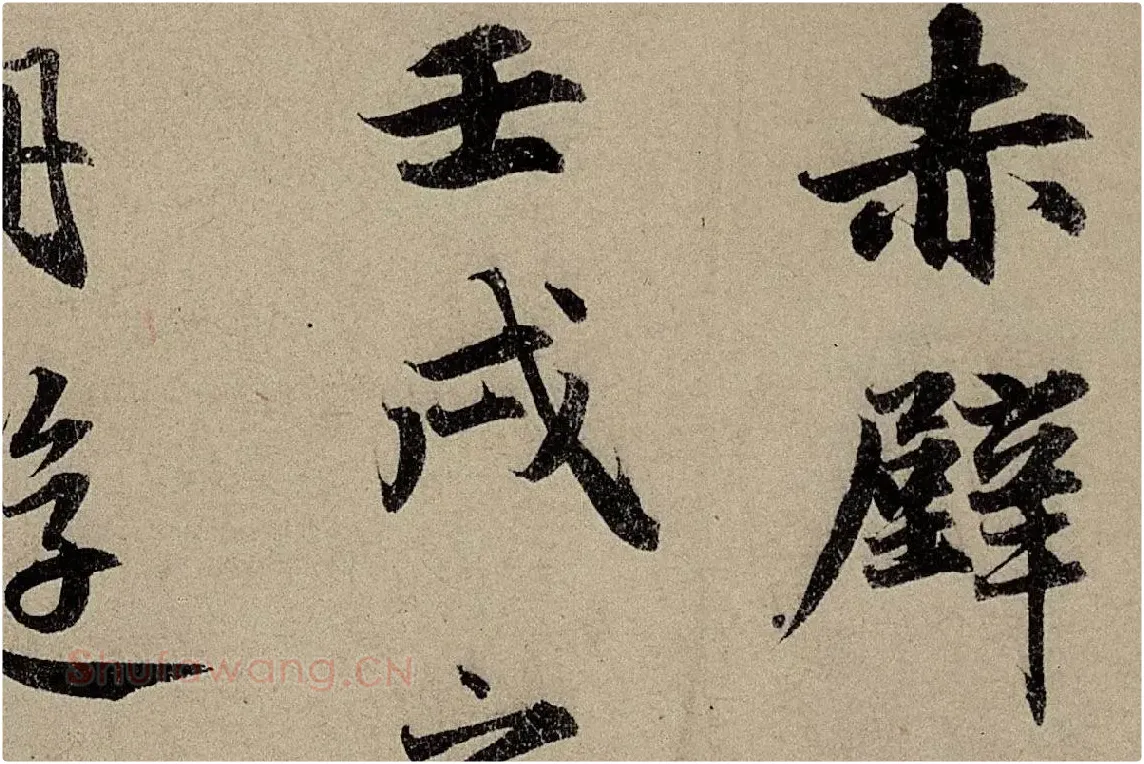 赤壁
壬戌之
遊
Shufawang.CN